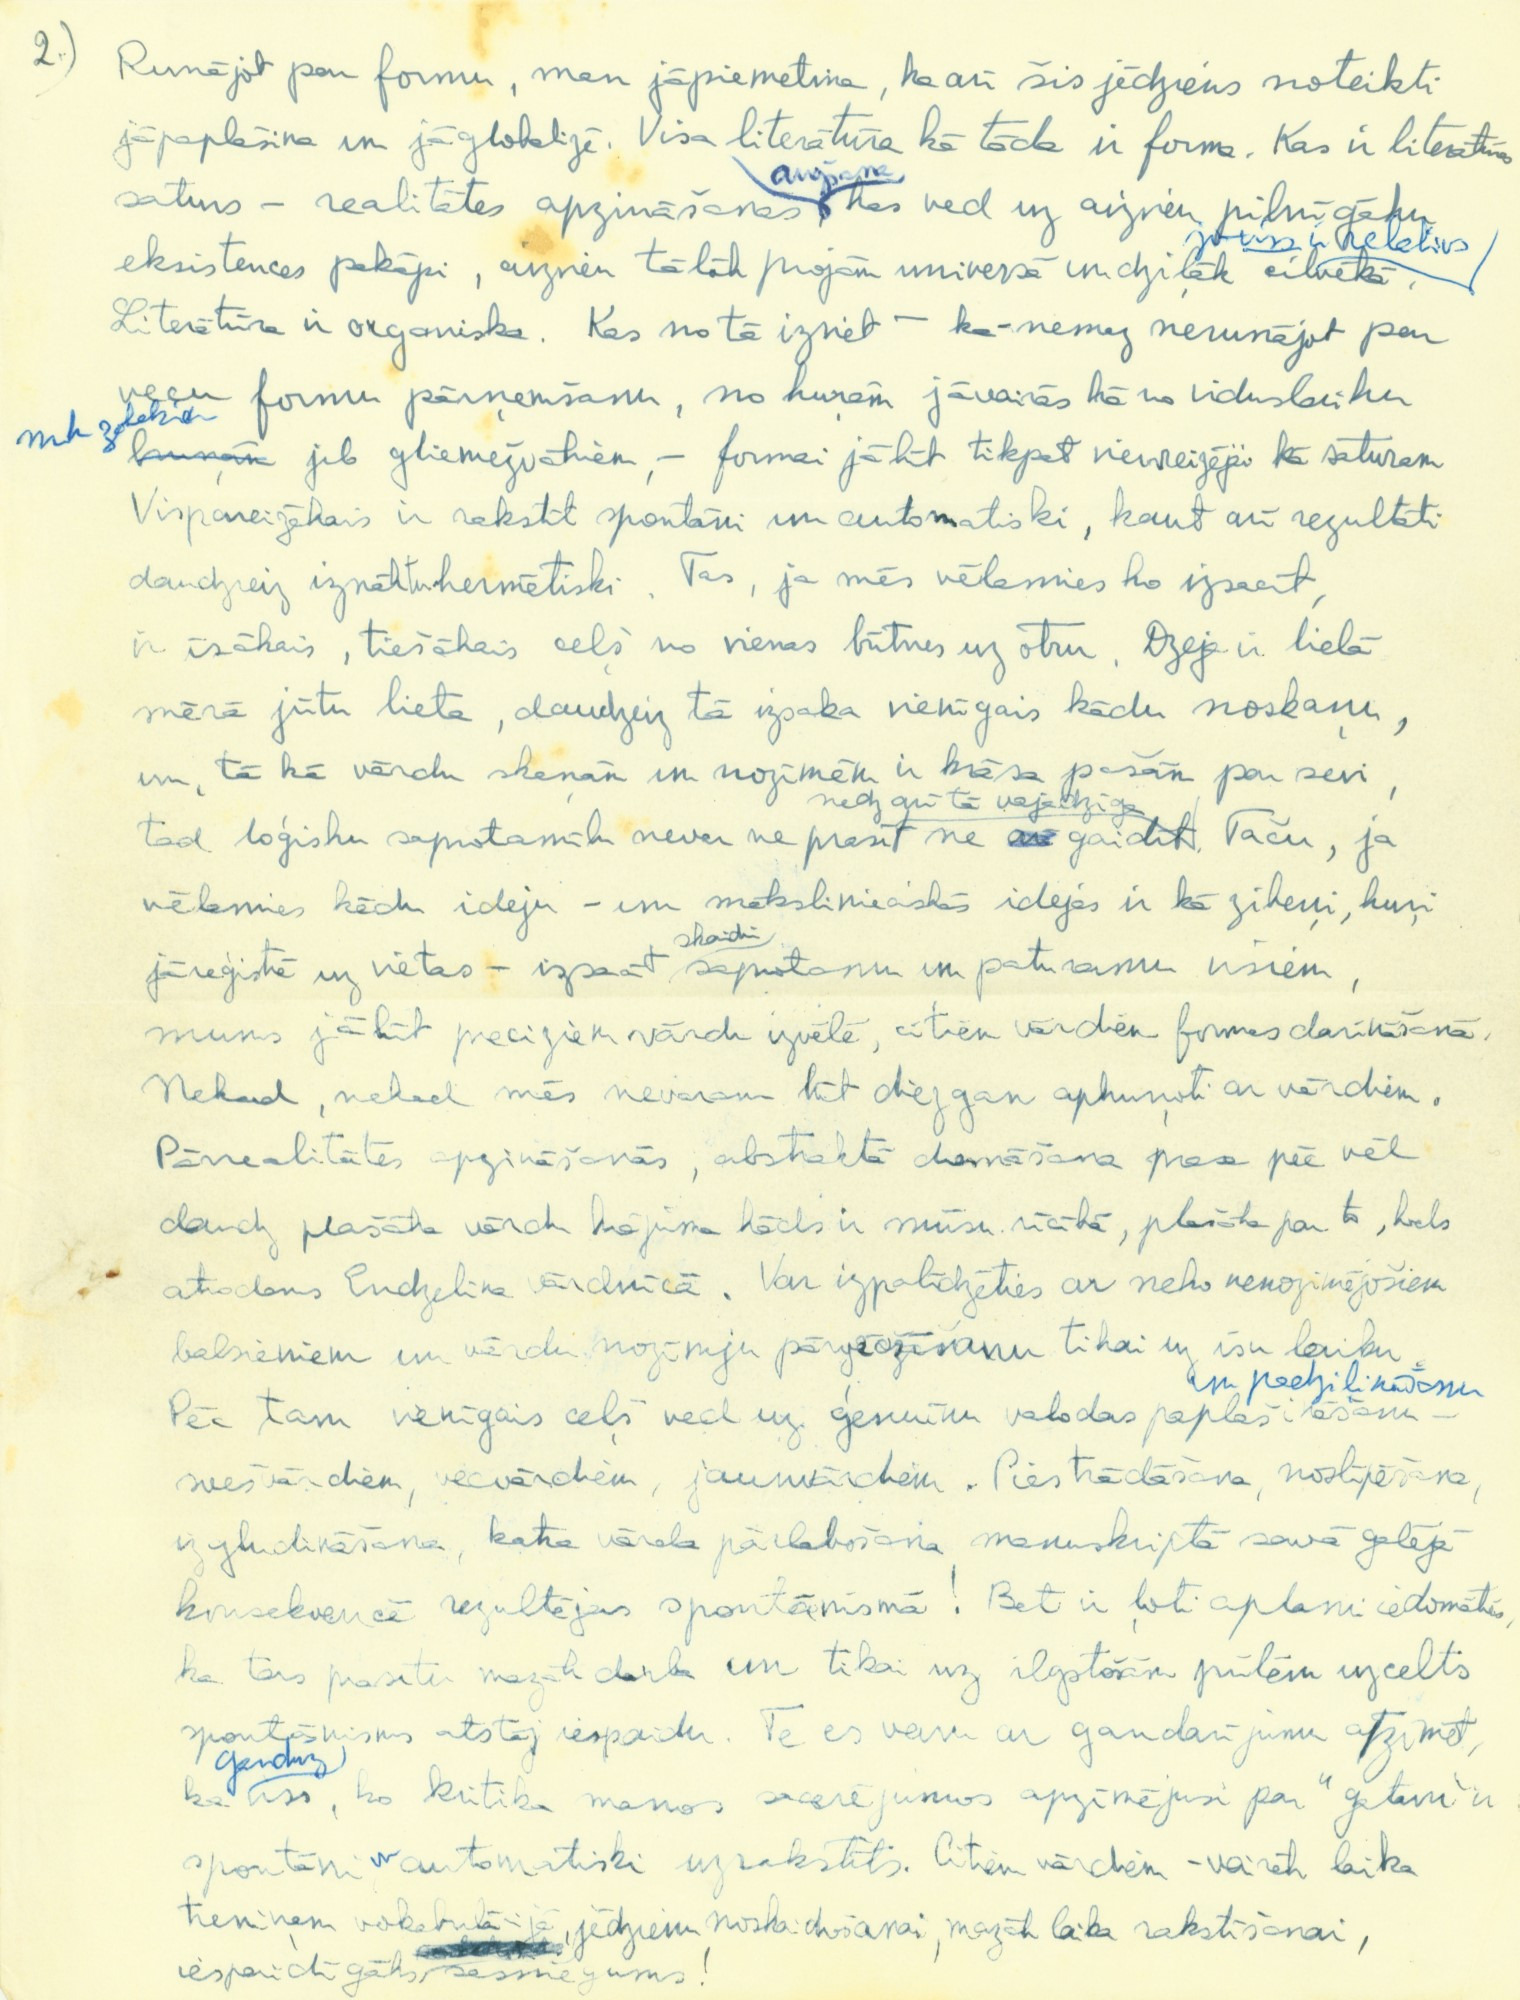 2.) Runājot par formu, man jāpiemetina, ka arī šis jēdziens noteikti
jāpaplašina un jāglobalizē. Visa literatūra kā tāda ir forma. Kas ir literatūras
augšana
saturs – realitātes apzināšanas, kas ved uz aizvien pilnīgāku
jo viss ir relatīvs
eksistences pakāpi, aizvien tālāk projām universā un dziļāk cilvēkā.
Literatūra ir organiska. Kas no tā izriet – ka – nemaz nerunājot par
vecu formu pārņemšanu, no kurām jāvairās kā no viduslaiku
jeb gliemežvākiem, – formai jābūt tikpat vienreizējai kā saturam
Vispareizākais ir rakstīt spontāni un automatiski, kaut arī rezultāti
daudzreiz iznāktu hermētiski. Tas, ja mēs vēlamies ko izsacīt,
ir īsākais, tiešākais ceļš no vienas būtnes uz otru. Dzeja ir lielā
mērā jūtu lieta, daudzreiz tā izsaka vienīgais kādu noskaņu,
un, tā kā vārdu skaņām un nozīmēm ir krāsa pašām par sevi,
nedz arī tā vajadzīga
tad loģisku sapratamību nevar ne prasīt ne gaidīt. Taču, ja
vēlamies kādu ideju – un mākslinieciskās idejas ir kā zibeņi, kuŗi
skaidri
jāreģistrē uz vietas – izsacīt saprotamu un paturamu visiem,
mums jābūt precīziem vārdu izvēlē, citiem vārdiem formas darināšanā.
Nekad, nekad mēs nevaram būt diezgan apkuŗoti ar vārdiem.
Pārrealitātes apzināšanās, abstraktā domāšana prasa pēc vēl
daudz plašāka vārdu krājuma kāds ir mūsu rīcībā, plašāka par to, kāds
atrodams Endzelīna vārdnīcā. Var izpalīdzēties ar neko nenozīmējošiem
balsieniem un vārdu nozīmju pārgrozīšanu tikai uz īsu laiku
un padziļināšanu
Pēc tam vienīgais ceļš ved uz ģenuīnu valodas paplašināšanu –
svešvārdiem, vecvārdiem, jaunvārdiem. Piestrādāšana, noslīpēšana,
izgludināšana, katra vārda pārlabošana manuskriptā savā galējā
konsekvencē rezultējas spontānismā! Bet ir ļoti aplami iedomāties,
ka tas prasītu mazāk darba un tikai uz ilgstošām pūlēm uzcelts
spontānisms atstāj iespaidu. Te es varu ar gandarījumu atzīmēt,
gandrīz
ka viss, ko kritika manos sacerējumos apzīmējusi par "gatavu" ir
spontāni un automatiski uzrakstīts. Citiem vārdiem – vairāk laika
treniņam vokabulārijā, jēdzienu noskaidrošanai, mazāk laika rakstīšanai,
iespaidīgāks sasniegums!